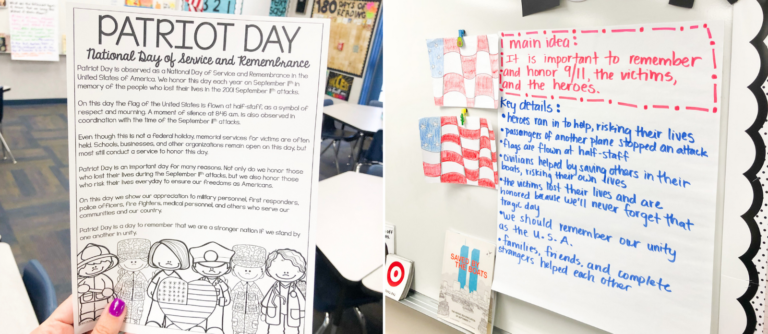 180 DAYS
PATRIOT DAY
National Day of Service and Remembrance
Patriot Day is observed as a National Day of Service and Remembrance in the
United States of America. We honor this day each year on September 11th in
memory of the people who lost their lives in the 2001 September 11th attacks.
On this day the flag of the United States is flown at half-staff, as a symbol of
respect and mourning. A moment of silence at 8:46 a.m. is also observed in
coordination with the time of the September 11th attacks.
Even though this is not a federal holiday, memorial services for victims are often
held. Schools, businesses, and other organizations remain open on this day, but
most still conduct a service to honor this day.
Patriot Day is an important day for many reasons. Not only do we honor those
who lost their lives during the September 11th attacks, but we also honor those
who risk their lives everyday to ensure our freedoms as Americans.
On this day we show our appreciation to military personnel, first responders,
police officers, fire fighters, medical personnel, and others who serve our
communities and our country.
Patriot Day is a day to remember that we are a stronger nation if we stand by
one another in unity.
main idea:
It is important to remember
and honor 9/11, the victims,
and the heroes.
Key details:
•heroes ran in to help, risking their lives
•passengers of another plane stopped an attack
•flags are flown at half-staff
•civilians helped by saving others in their
boats, risking their own lives
•the victims lost their lives and are
honored because we'll never forget that
tragic day
•we should remember our unity
as the U.S.A.
•families, friends, and complete
strangers helped each other
SAVED BY
THE BOATS